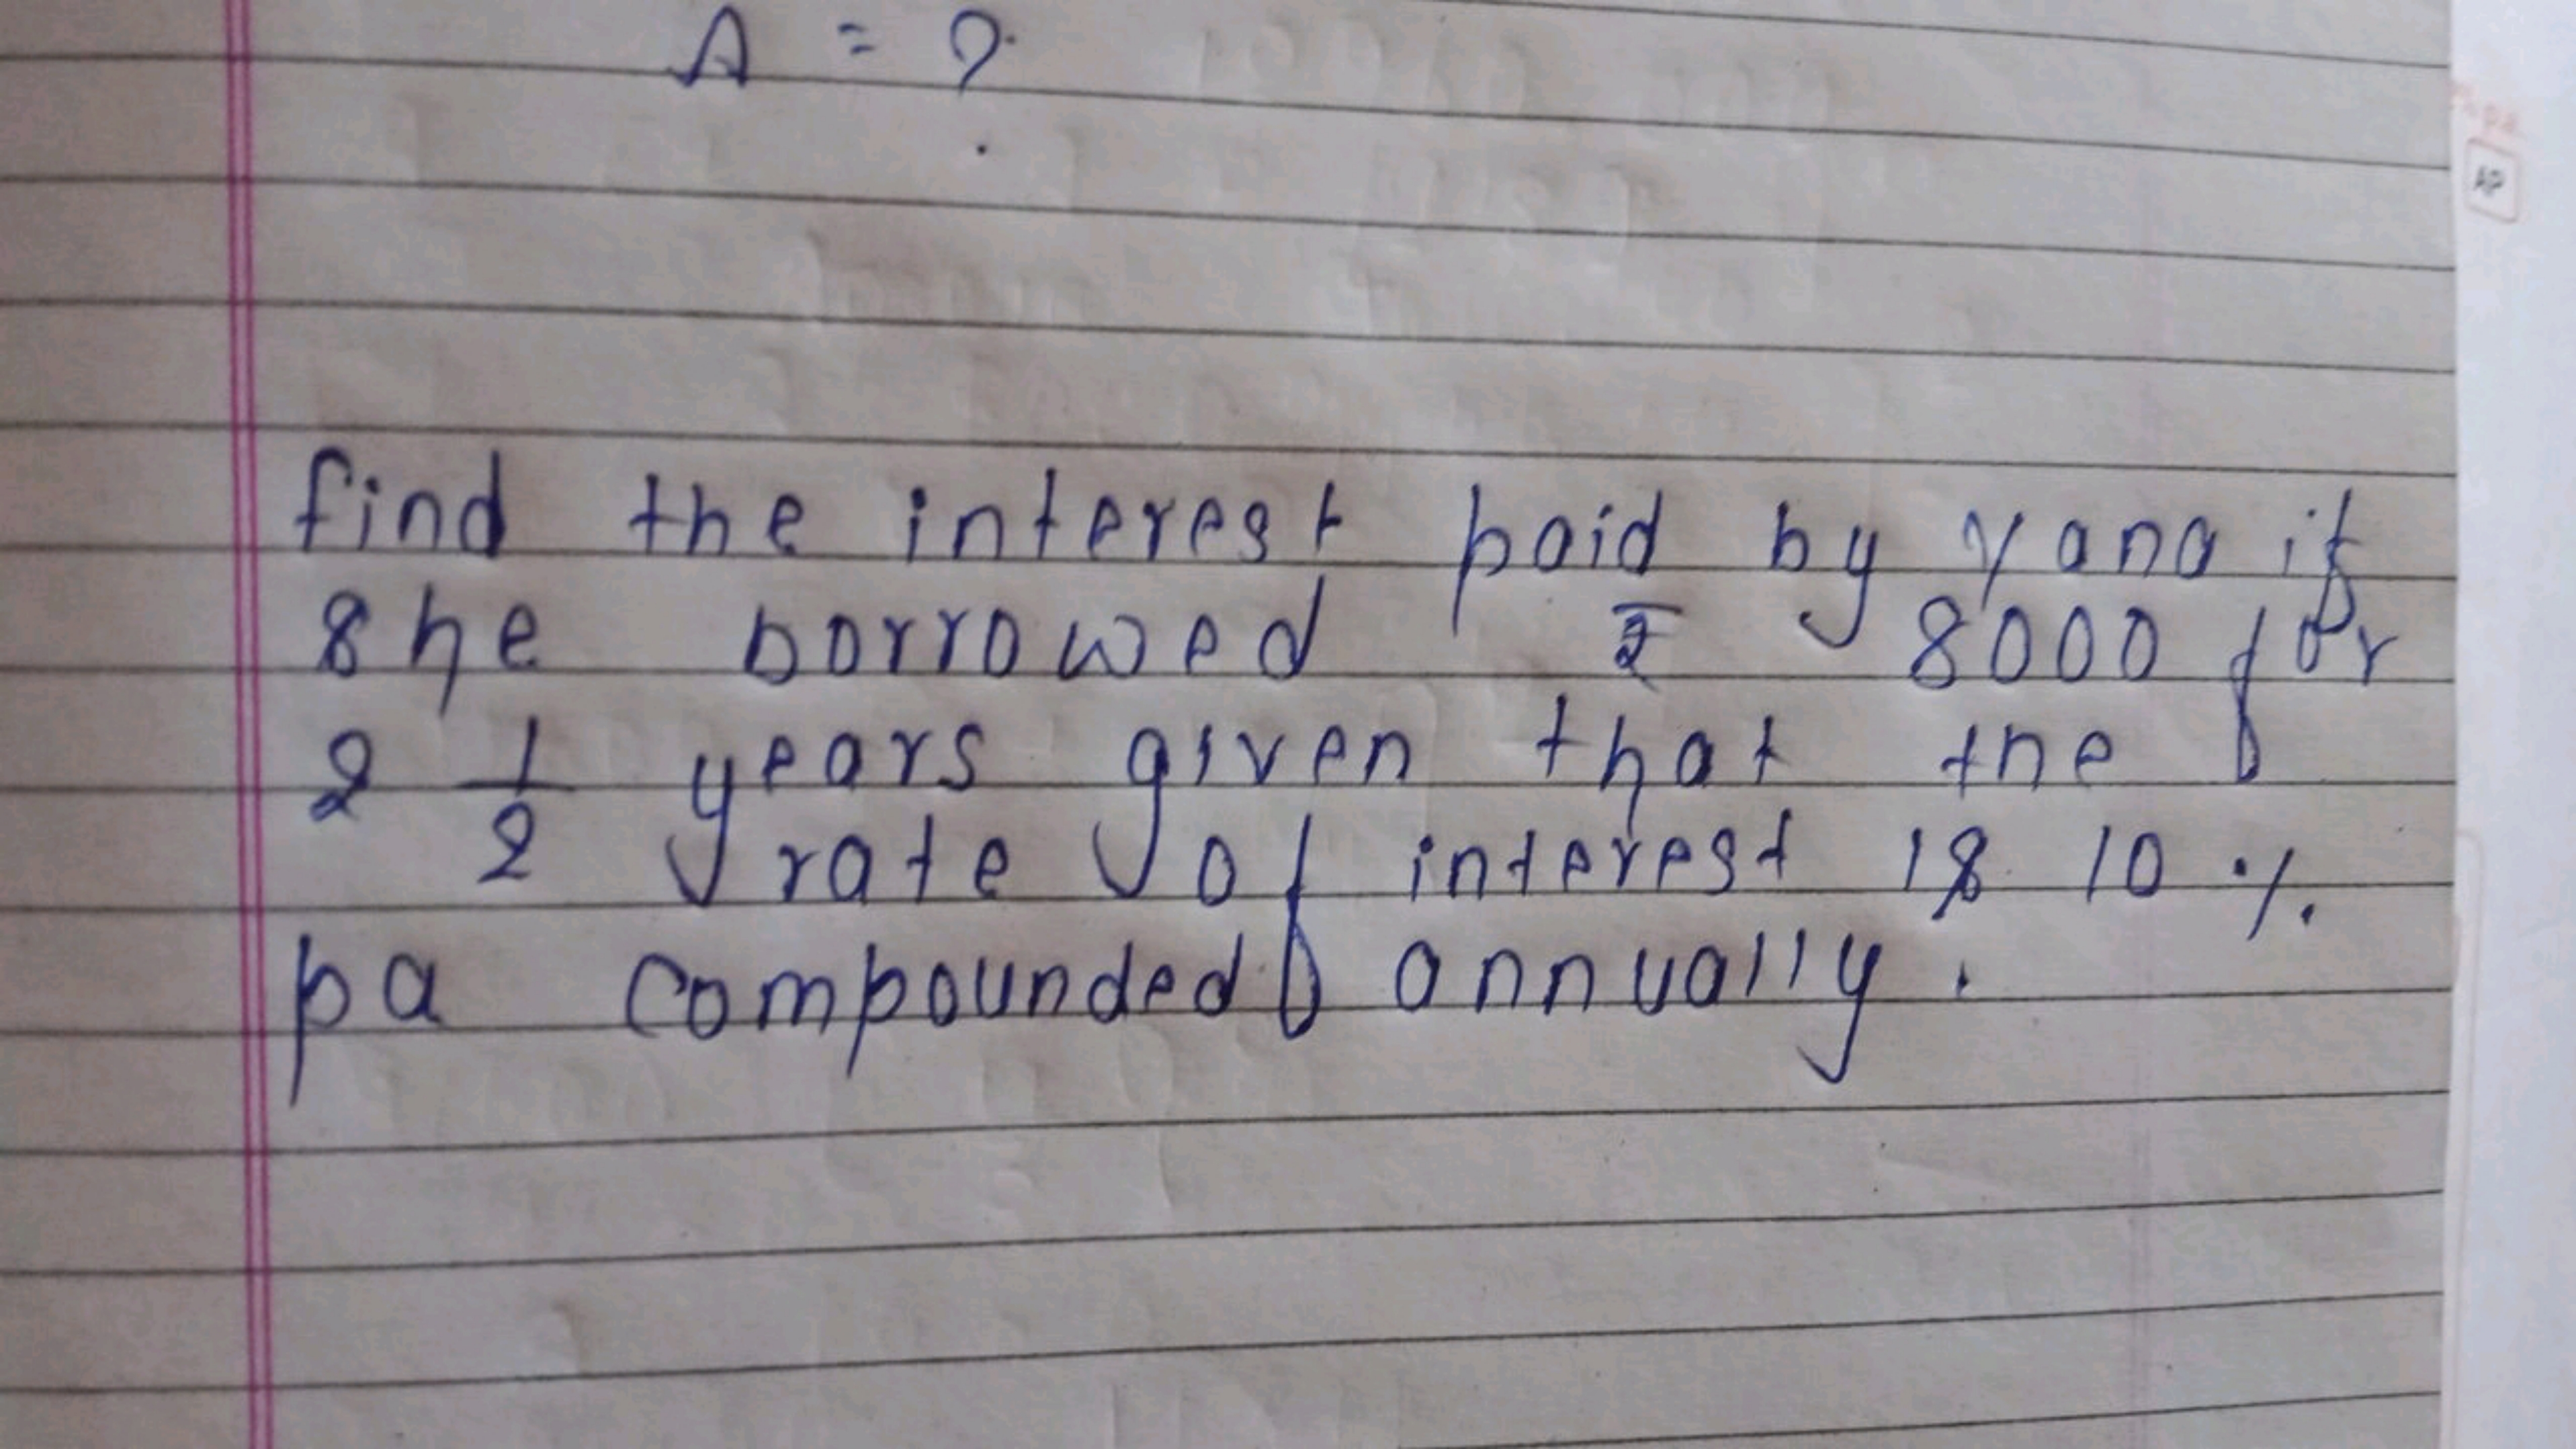 A = ?
find the interest paid by Yana if
she borrowed ₹ 8000 for
2 1/2 years given that the
rate of interest is 10 %.
pa compounded annually.
AP